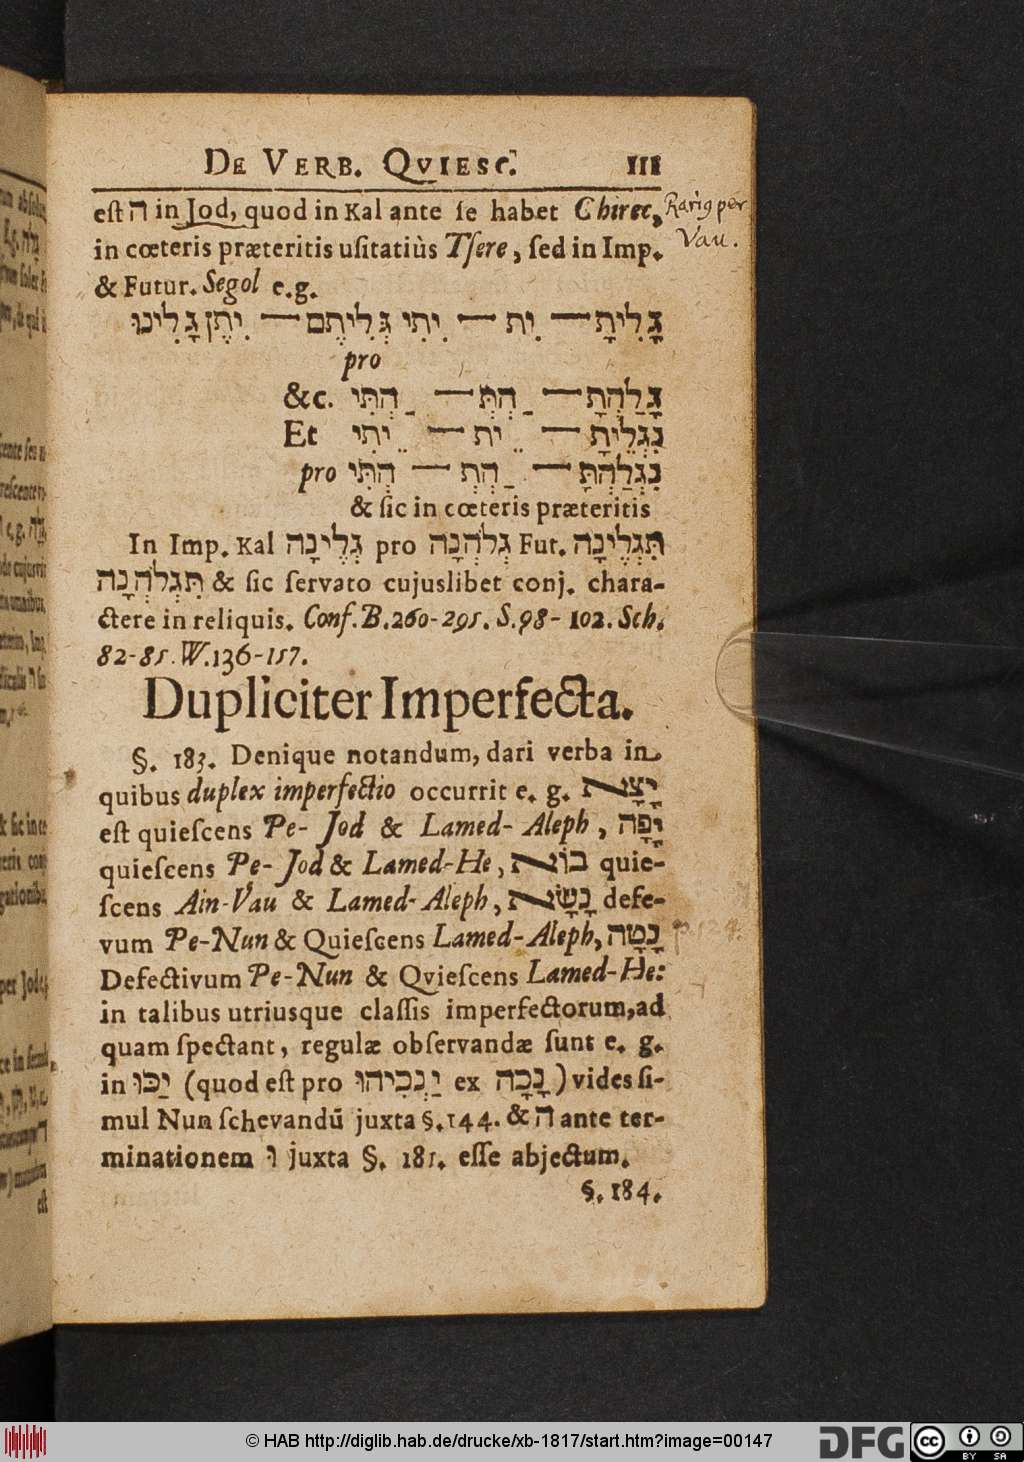 DE VERB. QVIESC. 111
est ה in Jod, quod in Kal ante se habet Chirec,
Rariq per
Vau.
in cœteris præteritis usitatiùs Tsere, sed in Imp.
& Futur. Segol e.g.
גָּלִיתָ — ִית — ִיתִי גְּלִיתֶם — ִיתֶן גָּלִינוּ
pro
גָּלַהְתָּ — ַהְתְּ — ַהְתִּי &c.
נִגְלֵיתָ — ֵית — ֵיתִי Et
נִגְלַהְתָּ — ַהְתְּ — ַהְתִּי pro
& sic in cœteris præteritis
In Imp. Kal גְּלֶינָה pro גְּלֹהְנָה Fut. תִּגְלֶינָה
תִּגְלֹהְנָה & sic servato cujuslibet conj. chara-
ctere in reliquis. Conf. B. 260-295. S. 98-102. Sch.
82-85. W. 136-157.
Dupliciter Imperfecta.
§. 183. Denique notandum, dari verba in
quibus duplex imperfectio occurrit e. g. יָצָא
est quiescens Pe-Jod & Lamed-Aleph, יָפָה
quiescens Pe-Jod & Lamed-He, בוֹא quie-
scens Ain-Vau & Lamed-Aleph, נָשָׂא defe-
vum Pe-Nun & Quiescens Lamed-Aleph, נָטָה
Defectivum Pe-Nun & Qviescens Lamed-He:
in talibus utriusque classis imperfectorum, ad
quam spectant, regulæ observandæ sunt e. g.
in יַכּוּ (quod est pro יַנְכִּיהוּ ex נָכָה) vides si-
mul Nun schevandū juxta §. 144. & ה ante ter-
minationem וּ juxta §. 181. esse abjectum.
§. 184.
© HAB http://diglib.hab.de/drucke/xb-1817/start.htm?image=00147
DFG
cc BY SA